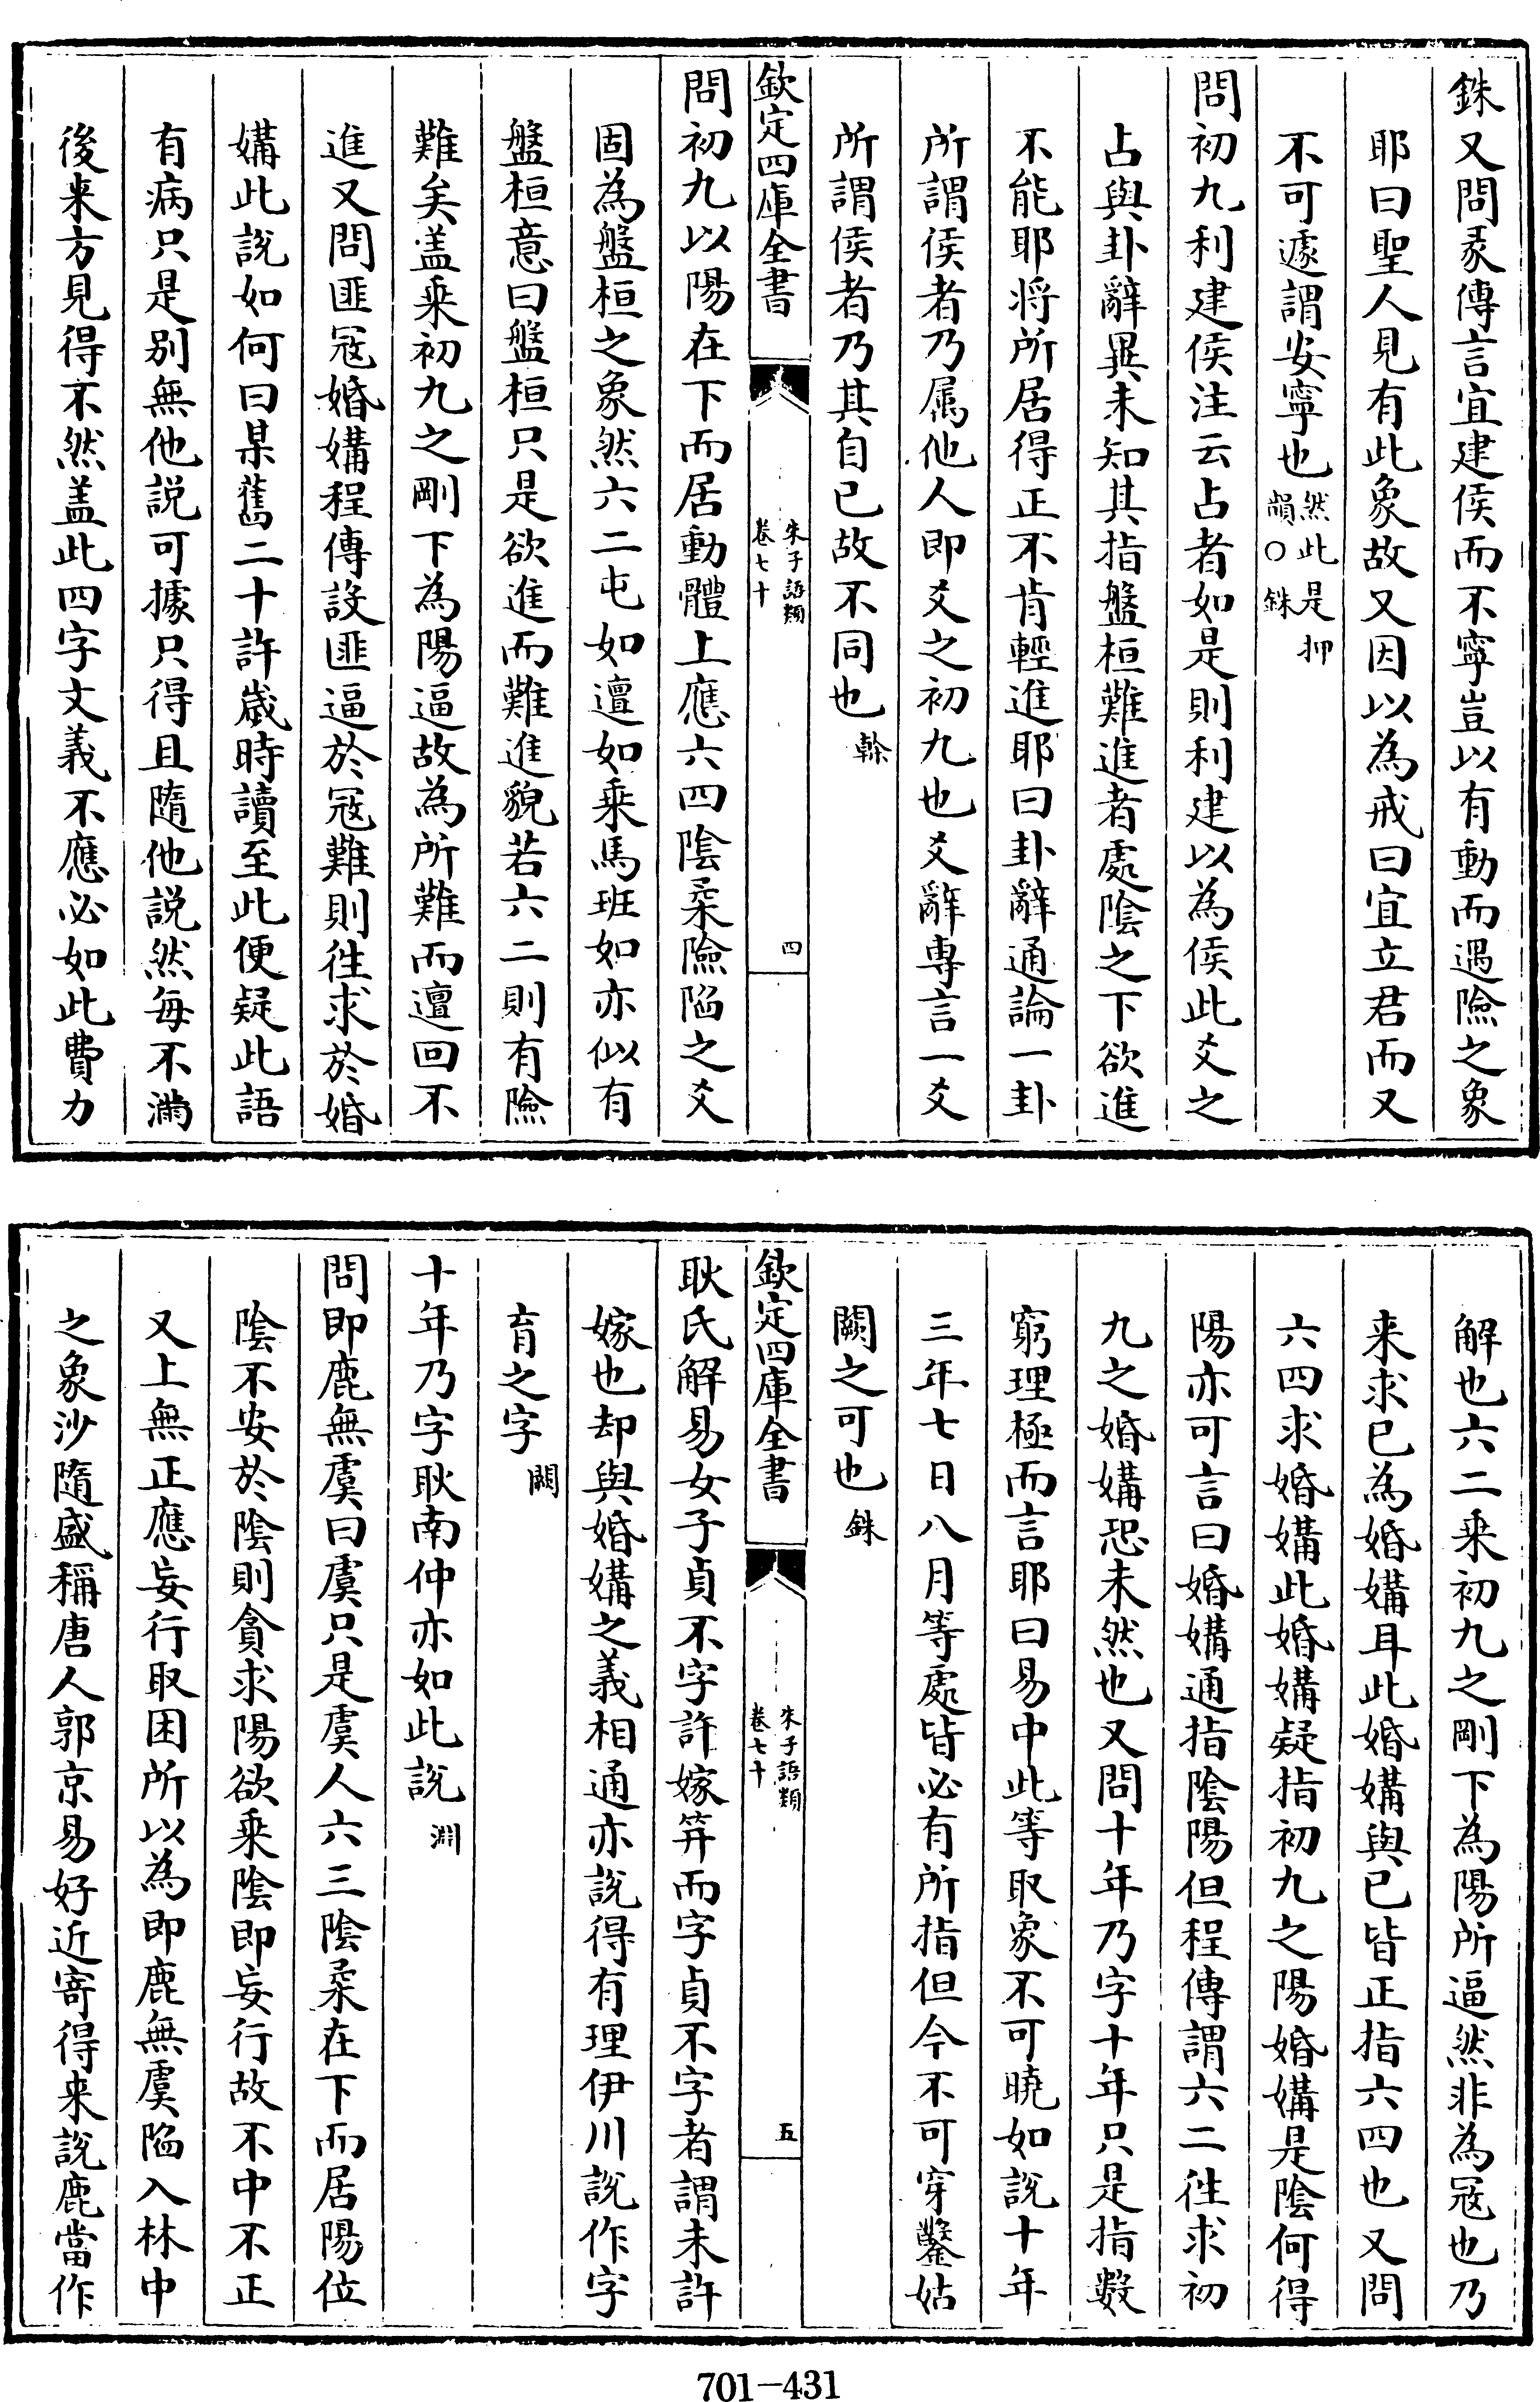 銖又問彖傳言宜建侯而不寧豈以有動而遇險之象
耶曰聖人見有此象故又因以為戒曰宜立君而又
不可遽謂安寧也然此是押韻○銖
問初九利建侯注云占者如是則利建以為侯此爻之
占與卦辭異未知其指盤桓難進者處隂之下欲進
不能耶将所居得正不肯輕進耶曰卦辭通論一卦
所謂侯者乃属他人即爻之初九也爻辭專言一爻
所謂侯者乃其自已故不同也榦
欽定四庫全書
朱子語類
卷七十
四
問初九以陽在下而居動體上應六四隂柔險陷之爻
固為盤桓之象然六二屯如邅如乗馬班如亦似有
盤桓意曰盤桓只是欲進而難進貌若六二則有險
難矣盖乗初九之剛下為陽逼故為所難而邅回不
進又問匪冦婚媾程傳設匪逼於冦難則徃求於婚
媾此說如何曰某舊二十許歲時讀至此便疑此語
有病只是别無他説可據只得且隨他説然每不滿
後来方見得不然盖此四字文義不應必如此費力
解也六二乗初九之剛下為陽所逼然非為冦也乃
来求已為婚媾耳此婚媾與已皆正指六四也又問
六四求婚媾此婚媾疑指初九之陽婚媾是隂何得
陽亦可言曰婚媾通指隂陽但程傳謂六二徃求初
九之婚媾恐未然也又問十年乃字十年只是指數
窮理極而言耶曰易中此等取象不可曉如說十年
三年七日八月等處皆必有所指但今不可穿鑿姑
闕之可也銖
欽定四庫全書
朱子語類
卷七十
五
耿氏解易女子貞不字許嫁笄而字貞不字者謂未許
嫁也却與婚媾之義相通亦說得有理伊川說作字
育之字闕
十年乃字耿南仲亦如此說淵
問即鹿無虞曰虞只是虞人六三隂柔在下而居陽位
隂不安於隂則貪求陽欲乗隂即妄行故不中不正
又上無正應妄行取困所以為即鹿無虞陷入林中
之象沙隨盛稱唐人郭京易好近寄得来說鹿當作
701-431